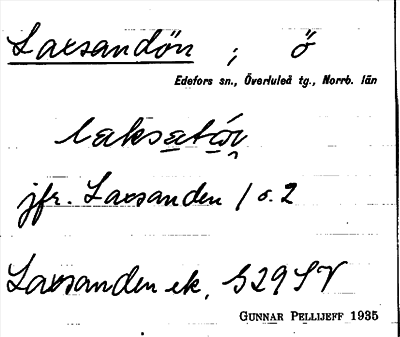 Laxsandön ; ö
Edefors sn., Överluleå tg., Norrb. län
jfr. Laxsanden 1 o. 2
Laxsanden ek. S29SV
GUNNAR PELLIJEFF 1935